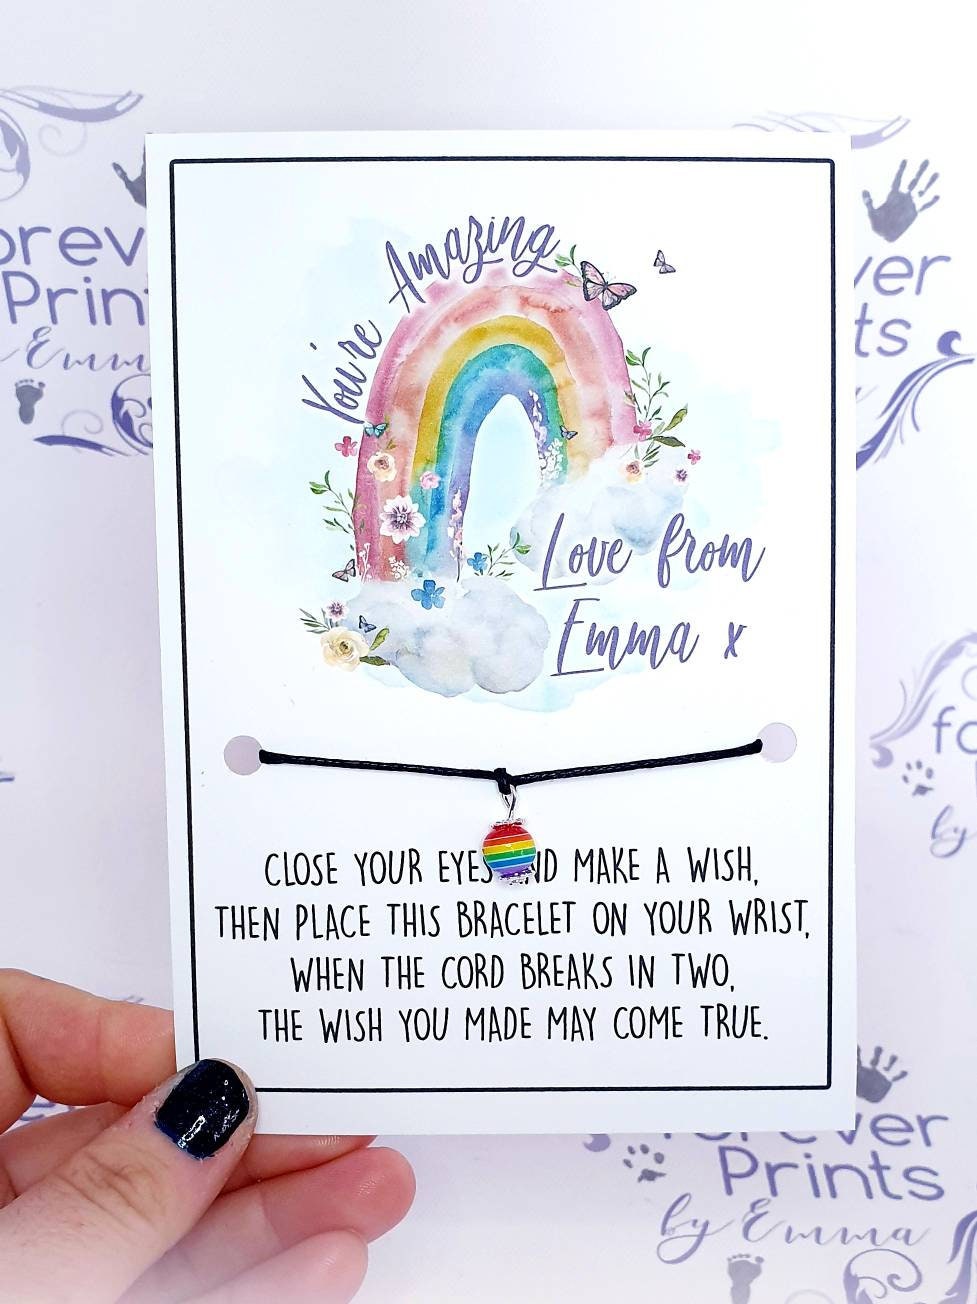 You're Amazing
Love from
Emma x
CLOSE YOUR EYES ND MAKE A WISH,
THEN PLACE THIS BRACELET ON YOUR WRIST,
WHEN THE CORD BREAKS IN TWO,
THE WISH YOU MADE MAY COME TRUE.
orever
Prin
Emm
ver
ts
fo
by
forever
Prints
by Emma